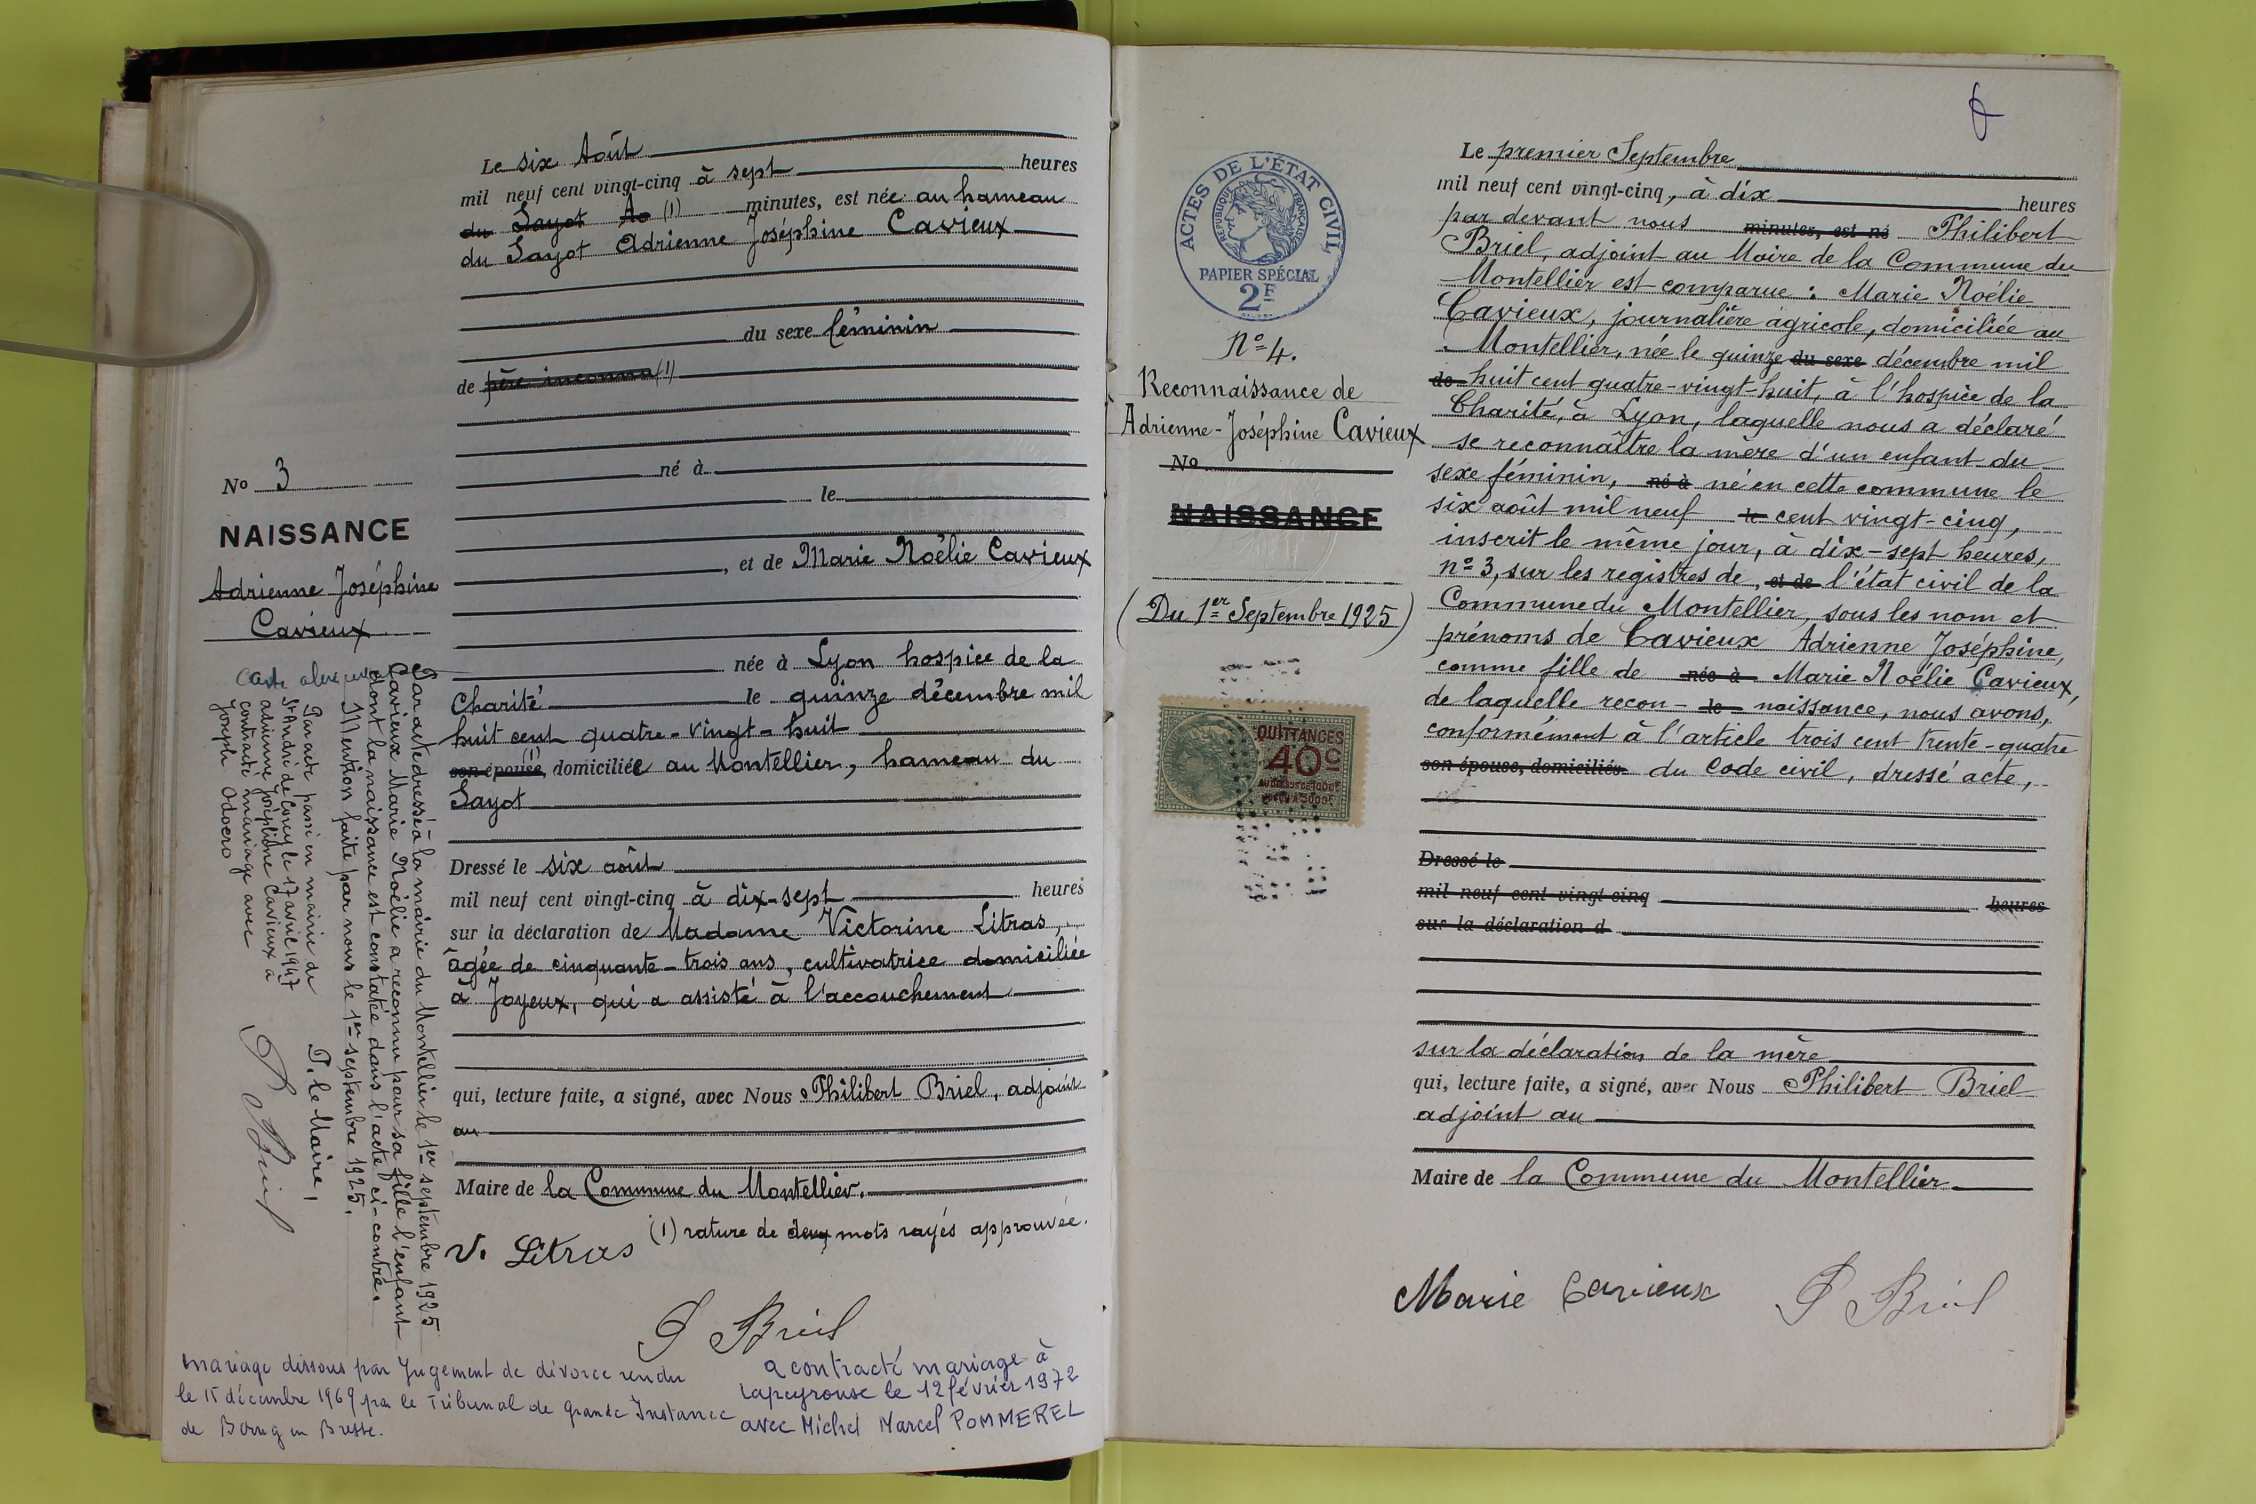 Le six Août
mil neuf cent vingt-cinq à sept heures
du Sayot (1) minutes, est née au hameau
du Sayot Adrienne Joséphine Cavieux
du sexe féminin
de père inconnu (1)
né à
le
, et de Marie Noélie Cavieux
née à Lyon hospice de la
Charité le quinze décembre mil
huit cent quatre-vingt-huit
(1)
son épouse, domiciliée au Montellier, hameau du
Sayot
Dressé le six août
mil neuf cent vingt-cinq à dix-sept heures
sur la déclaration de Madame Victorine Litras,
âgée de cinquante-trois ans, cultivatrice domiciliée
à Joyeux, qui a assisté à l'accouchement
qui, lecture faite, a signé, avec Nous Philibert Briel, adjoint
au
Maire de la Commune du Montellier.
(1) rature de deux mots rayés approuvée.
V. Litras
P Briel
No 3
NAISSANCE
Adrienne Joséphine
Cavieux
Par acte dressé à la mairie du Montellier le 1er septembre 1925
Cavieux Marie Noélie a reconnu pour sa fille l'enfant
dont la naissance est constatée dans l'acte ci-contre.
Mention faite par nous le 1er septembre 1925.
P. le Maire,
P Briel
Par acte passé en mairie de
St André de Corcy le 17 avril 1947
adrienne joséphine Cavieux a
contracté mariage avec
Joseph Odoero
Carte
mariage dissous par Jugement de divorce rendu
le 15 décembre 1969 par le Tribunal de Grande Instance
de Bourg en Bresse.
a contracté mariage à
Lapeyrouse le 12 février 1972
avec Michel Marcel POMMEREL
ACTES DE L'ÉTAT CIVIL
RÉPUBLIQUE FRANÇAISE
PAPIER SPÉCIAL
2F
No 4.
Reconnaissance de
Adrienne-Joséphine Cavieux
No
NAISSANCE
(Du 1er Septembre 1925)
QUITTANCES
40c
Le premier Septembre
mil neuf cent vingt-cinq, à dix heures
par devant nous minutes, est né Philibert
Briel, adjoint au Maire de la Commune du
Montellier est comparue : Marie Noélie
Cavieux, journalière agricole, domiciliée au
Montellier, née le quinze du sexe décembre mil
de huit cent quatre-vingt-huit, à l'hospice de la
Charité, à Lyon, laquelle nous a déclaré
se reconnaître la mère d'un enfant du
sexe féminin, né à né en cette commune le
six août mil neuf le cent vingt-cinq,
inscrit le même jour, à dix-sept heures,
no 3, sur les registres de , et de l'état civil de la
Commune du Montellier, sous les nom et
prénoms de Cavieux Adrienne Joséphine,
comme fille de née à Marie Noélie Cavieux,
de laquelle recon- le naissance, nous avons,
conformément à l'article trois cent trente-quatre
son épouse, domiciliés du Code civil, dressé acte,
Dressé le
mil neuf cent vingt-cinq heures
sur la déclaration d
sur la déclaration de la mère
qui, lecture faite, a signé, avec Nous Philibert Briel
adjoint au
Maire de la Commune du Montellier
Marie Cavieux P Briel